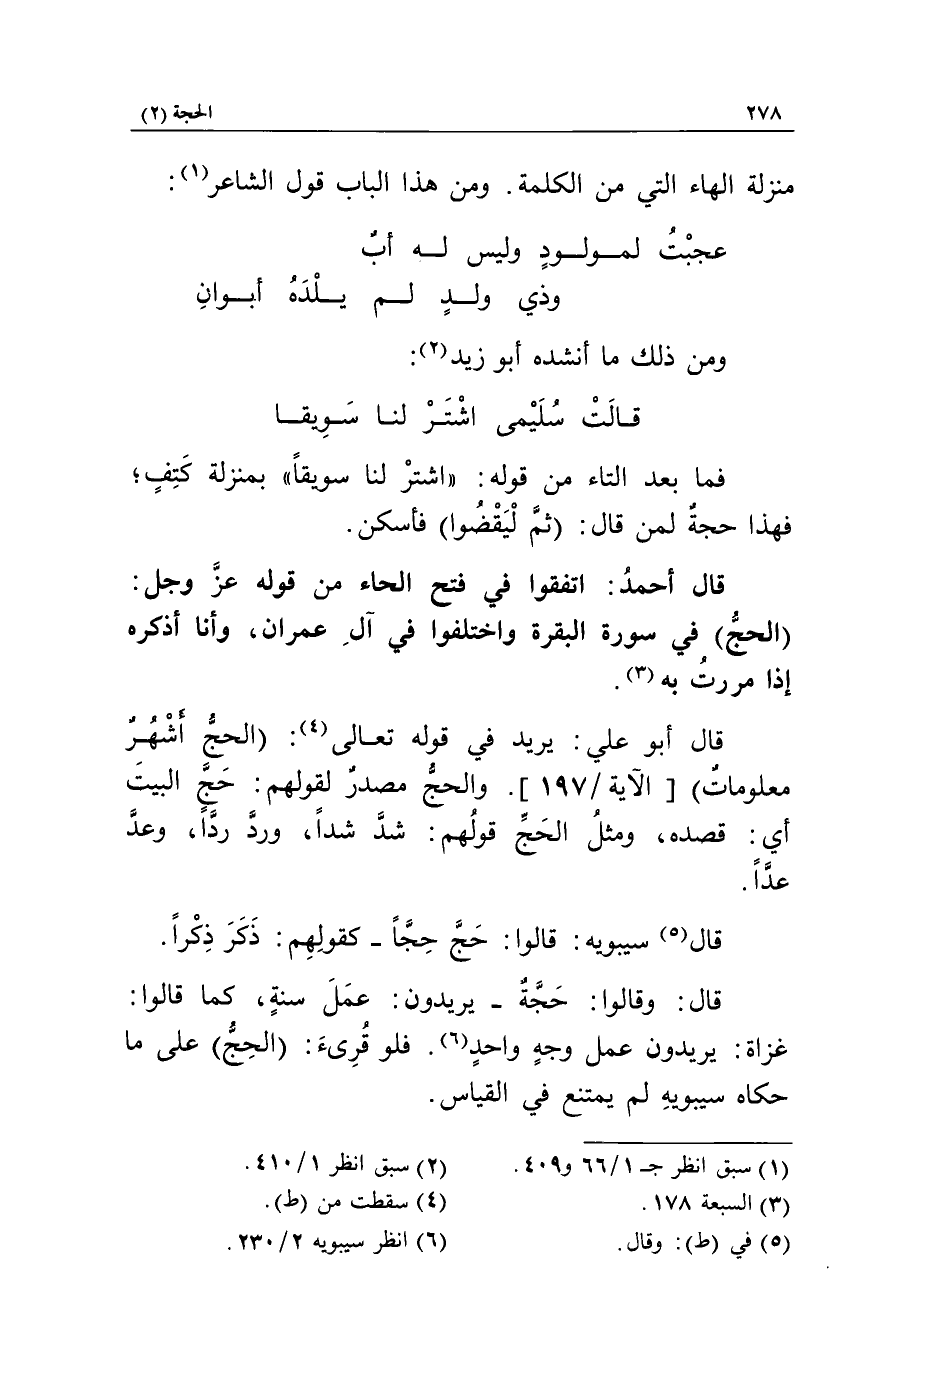 ٢٧٨ الحجة (٢)
منزلة الهاء التي من الكلمة. ومن هذا الباب قول الشاعر(١):
عجبْتُ لمـولـودٍ وليس لـه أبٌ
وذي ولـدٍ لـم يـلْدَهُ أبـوانِ
ومن ذلك ما أنشده أبو زيد(٢):
قـالَتْ سُلَيْمى اشْتَـرْ لنـا سَـوِيقـا
فما بعد التاء من قوله: «اشترْ لنا سويقاً» بمنزلة كَتِفٍ؛
فهذا حجةٌ لمن قال: (ثمَّ لْيَقْضُوا) فأسكن.
قال أحمدُ: اتفقوا في فتح الحاء من قوله عزَّ وجل:
(الحجُّ) في سورة البقرة واختلفوا في آلِ عمران، وأنا أذكره
إذا مررتُ به(٣).
قال أبو علي: يريد في قوله تعـالى(٤): (الحجُّ أَشْهُـرٌ
معلوماتٌ) [ الآية /١٩٧ ]. والحجُّ مصدرٌ لقولهم: حَجَّ البيتَ
أي: قصده، ومثلُ الحَجِّ قولُهم: شدَّ شداً، وردَّ ردَّاً، وعدَّ
عدَّاً.
قال(٥) سيبويه: قالوا: حَجَّ حِجَّاً ـ كقولِهِم: ذَكَرَ ذِكْراً.
قال: وقالوا: حَجَّةٌ ـ يريدون: عمَلَ سنةٍ، كما قالوا:
غزاة: يريدون عمل وجهٍ واحدٍ(٦). فلو قُرِىءَ: (الحِجُّ) على ما
حكاه سيبويهِ لم يمتنع في القياس.
(١) سبق انظر جـ ٦٦/١ و٤٠٩. (٢) سبق انظر ٤١٠/١.
(٣) السبعة ١٧٨. (٤) سقطت من (ط).
(٥) في (ط): وقال. (٦) انظر سيبويه ٢٣٠/٢.